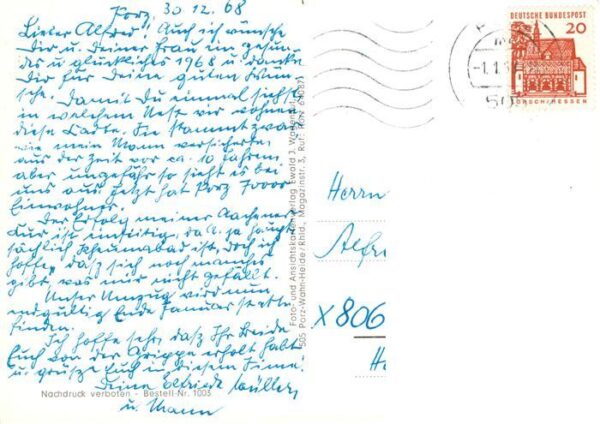 Porz, 30.12.68
Lieber Alfred! Auch ich wünsche
Dir u. Deiner Frau ein gesun-
des u glückliches 1968 u. danke
Dir für Deine guten Wün-
sche.
Damit Du einmal siehst
in welchem Nest wir wohnen
diese Karte. Sie stammt zwar
wie mein Mann versicherte
aus der Zeit vor ca. 10 Jahren,
aber ungefähr so sieht es bei
uns aus. Jetzt hat Porz 70000
Einwohner.
Der Erfolg meiner Aachener
Kur ist eindeutig, da A. ja haupt
sächlich Rheumabad ist, doch ich
hoffe, daß sich noch manches
gibt, was mir nicht gefällt.
Unser Umzug wird nun
endgültig Ende Januar statt-
finden.
Ich hoffe sehr, daß Ihr beide
Euch von der Grippe erholt habt
u. grüsze Euch in diesem Sinne.
Deine Elfriede Müller
u. Mann
Nachdruck verboten - Bestell-Nr. 1005
Foto- und Ansichtskartenverlag Ewald J.
505 Porz-Wahn-Heide/Rhld., Magazinstr. 3, Ruf: Porz
DEUTSCHE BUNDESPOST
20
LORSCH/HESSEN
-1.1.
50
Herrn
Alfr
X806